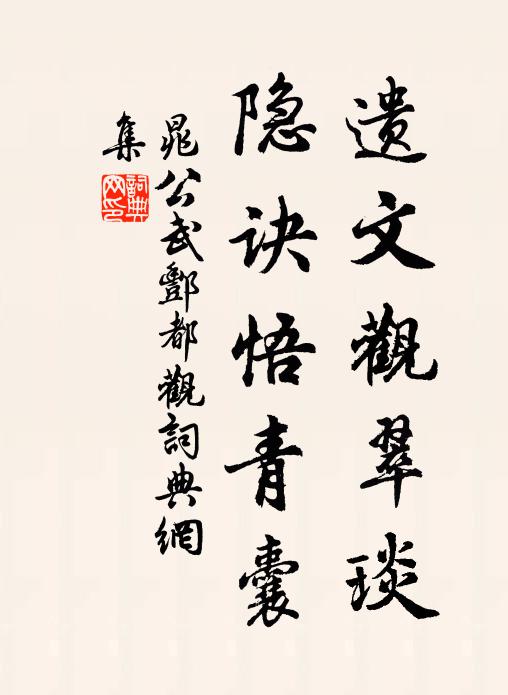 遗文觀翠琰
隐诀悟青囊
晁公武酆都觀詞典網
集
詞典
网印